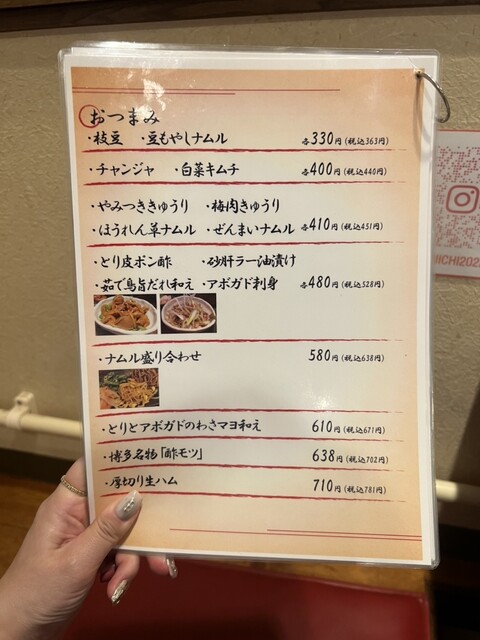 おつまみ
・枝豆 ・豆もやしナムル 各330円(税込363円)
・チャンジャ ・白菜キムチ 各400円(税込440円)
・やみつききゅうり ・梅肉きゅうり
・ほうれん草ナムル ・ぜんまいナムル 各410円(税込451円)
・とり皮ポン酢 ・砂肝ラー油漬け
・茹で鳥旨だれ和え ・アボガド刺身 各480円(税込528円)
・ナムル盛り合わせ 580円(税込638円)
・とりとアボガドのわさマヨ和え 610円(税込671円)
・博多名物「酢モツ」 638円(税込702円)
・厚切り生ハム 710円(税込781円)